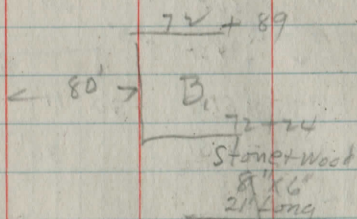 72 + 89
80'
B,
72+24
Stone+Wood
8" X 6"
21' Long